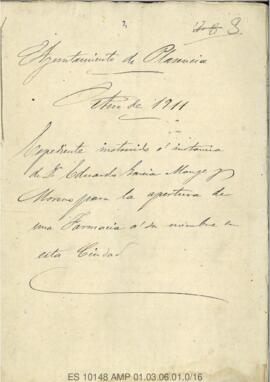 3
Ayuntamiento de Plasencia
de 1911
Expediente instruido á instancia
de Dn Eduardo Garcia Monge y
Moreno para la apertura de
una Farmacia á su nombre en
esta Ciudad
ES 10148 AMP 01.03.06.01.0/16